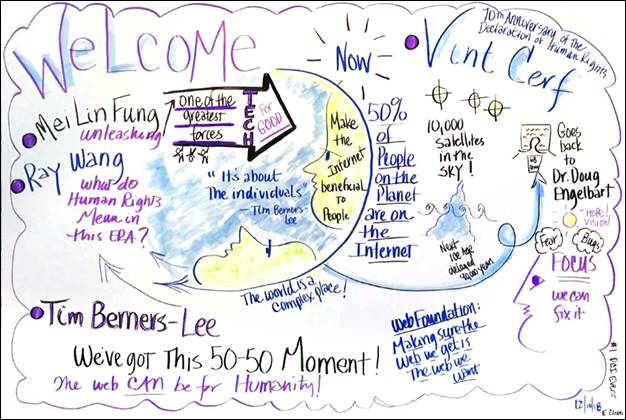 WELCOME
Mei Lin Fung
unleashing!
Ray Wang
what do
Human Rights
Mean in
this ERA?
One of the
greatest
forces
TECH
For
GOOD
"It's about
The individuals"
— Tim Berners-
Lee
Make
the
Internet
beneficial
to
People
The world is a
complex place!
Now
50%
of
People
on the
Planet
are on
the
Internet
Vint Cerf
70th Anniversary of the
Declaration of Human Rights
10,000
satellites
in the
sky!
Next
Ice Age
delayed
Goes
back
to
Dr. Doug
Engelbart
Here!
Vision!
Fear
Bugs
FOCUS
we can
fix it
Tim Berners-Lee
We've got This 50-50 Moment!
The web CAN be for Humanity!
Web Foundation:
Making sure the
Web we get is
The web we
want
12/10/18